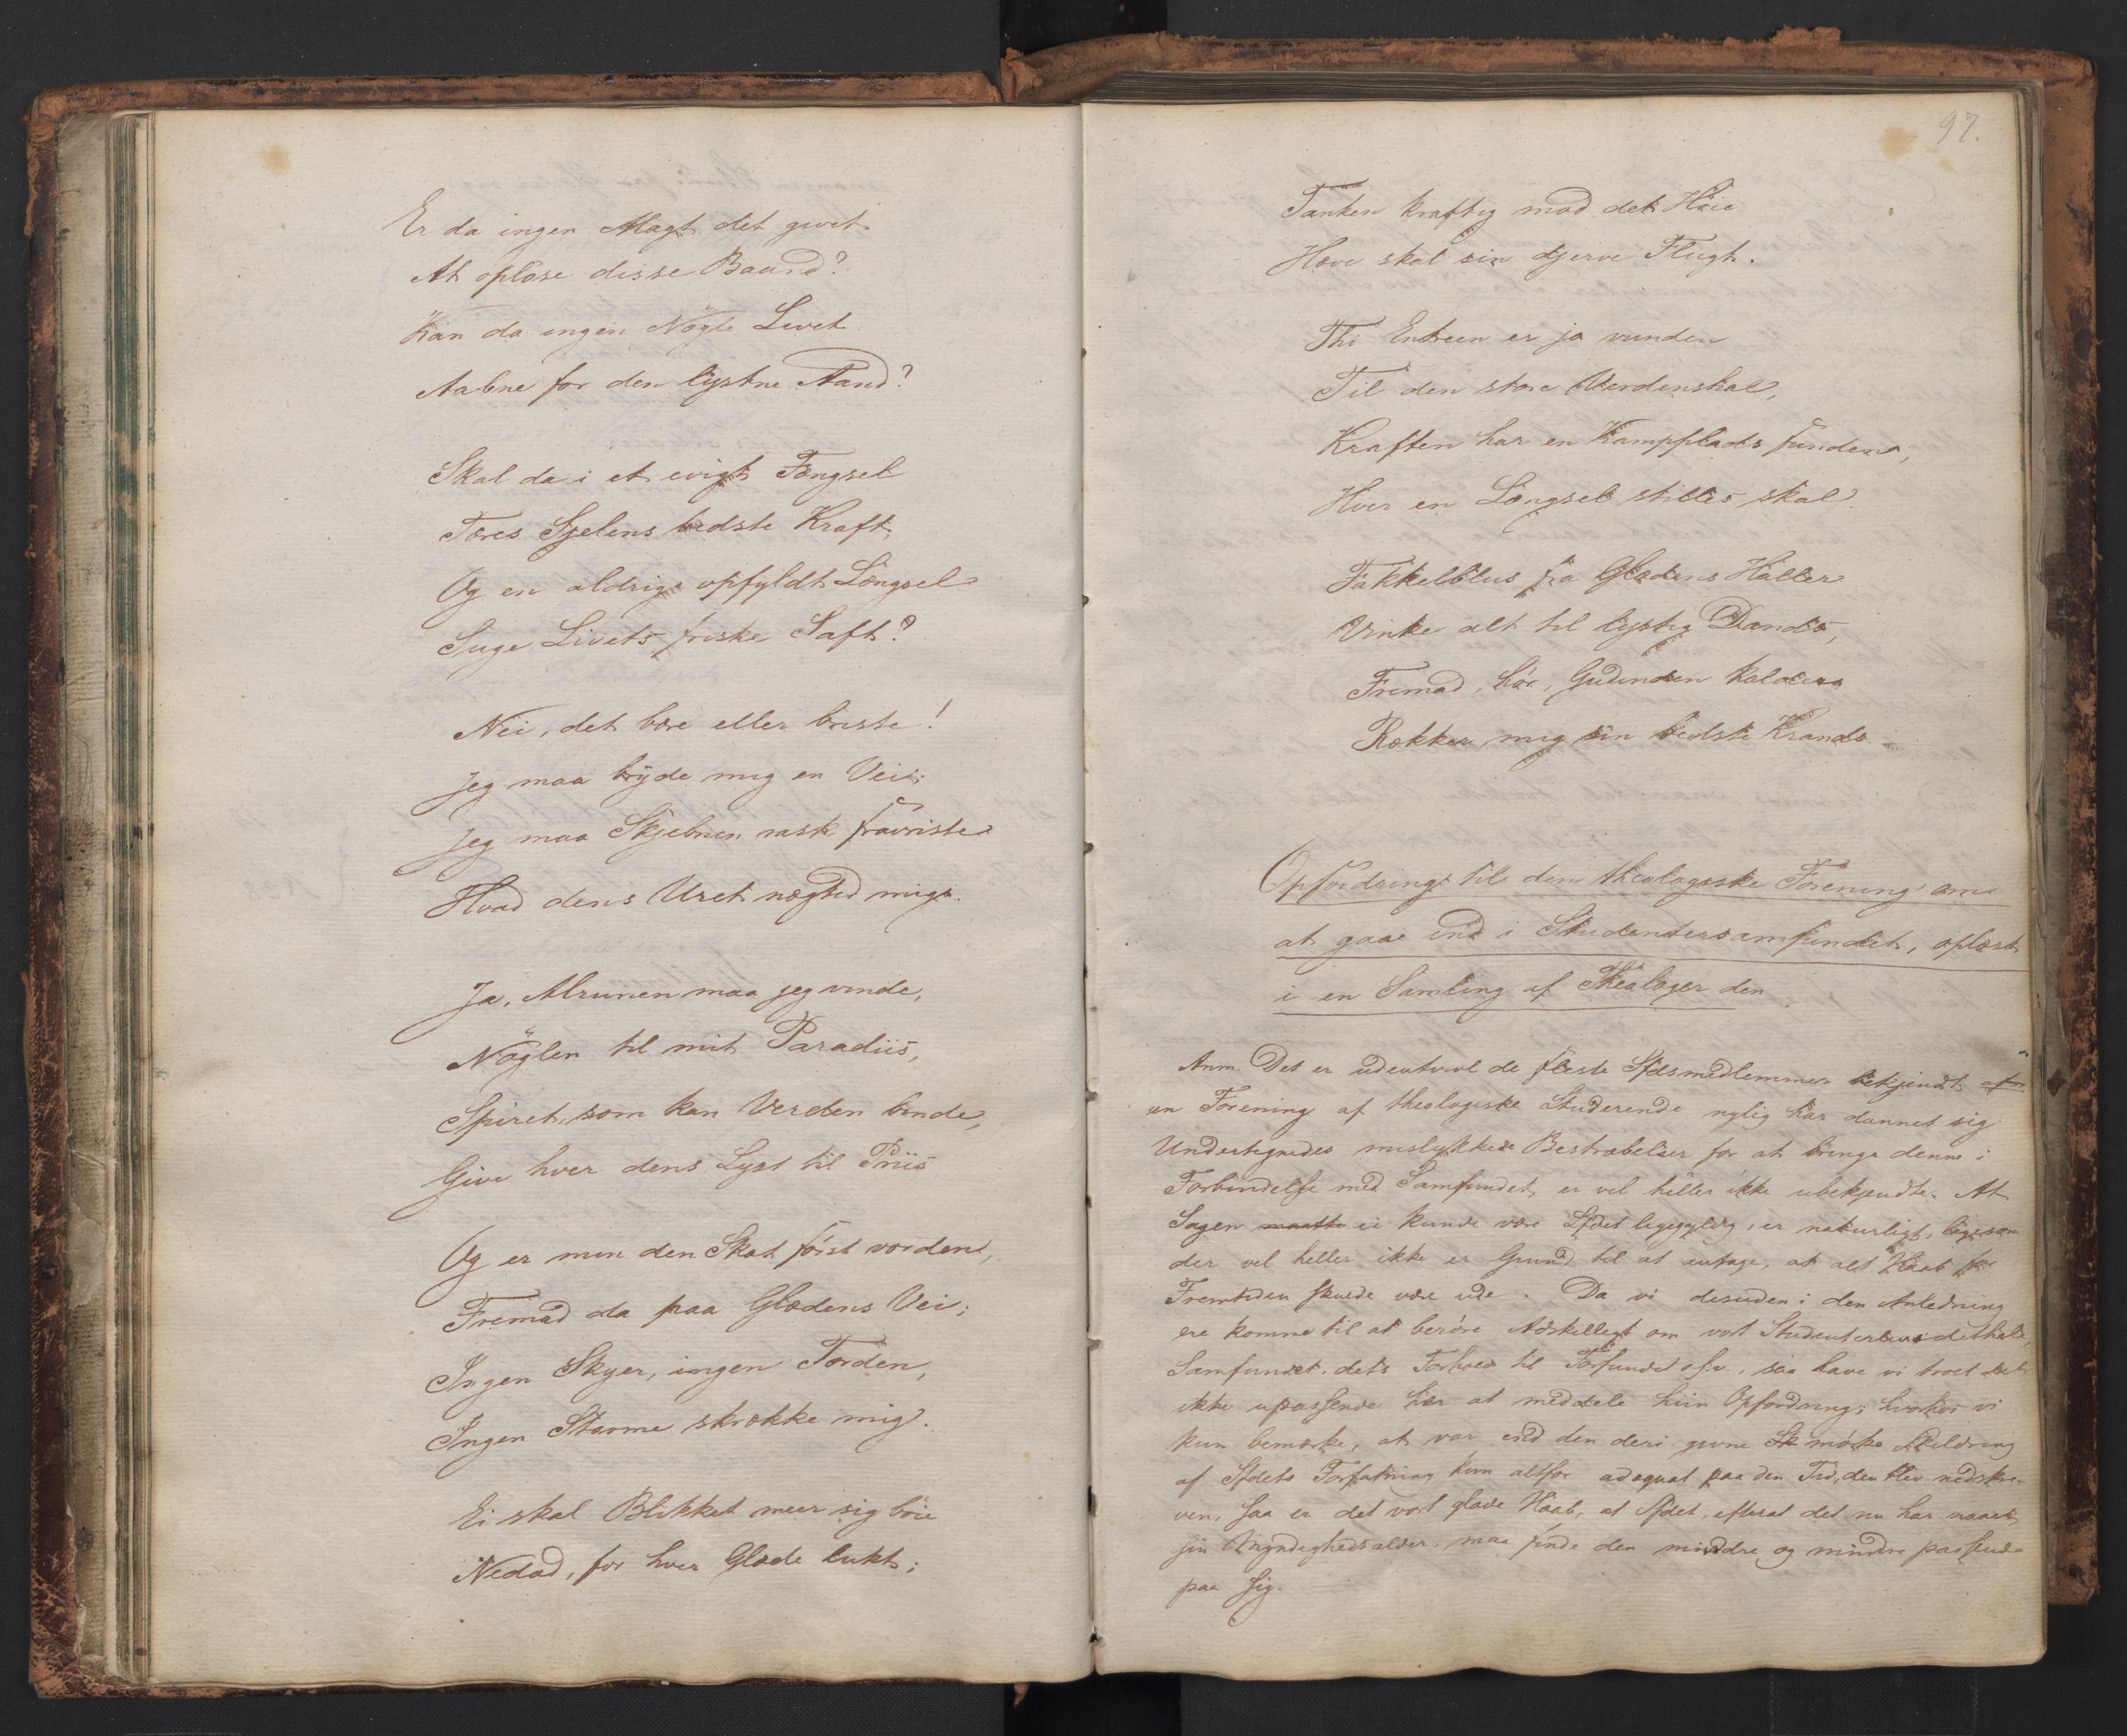 Er da ingen Magt det givet
At opløse disse Baand?
Kan da ingen Nøgle Livet
Aabne for den lystne Aand?
Skal da i et evigt Fængsel
Tæres Sjelens bedste Kraft,
Og en aldrig opfyldt Længsel
Suge Livets friske Saft?
Nei, det bære eller briste!
Jeg maa bryde mig en Vei;
Jeg maa Skjebnen rask fravriste
Hvad dens Uret negted mig.
Ja, Alrunen maa jeg vinde,
Nøglen til mit Paradiis,
Spiret, som kan Verden binde,
Give hver dens Lyst til Priis
Og er min den Skat først vorden,
Fremad da paa Glædens Vei;
Ingen Skyer, ingen Torden,
Ingen Storme skrække mig.
Ei skal Blikket meer sig bøie
Nedad, for hver Glæde lukt;
97.
Tanken kraftig mod det Høie
Hæve skal sin djerve Flugt.
Thi Entreen er jo vunden
Til den store Verdenshal,
Kraften har en Kampplads funden,
Hver en Længsel stilles skal.
Fakkelblus fra Glædens Haller
Vinke alt til lystig Dands,
Fremad, hør, Gudinden kalder
Rækker mig sin bedste Krands.
Opfordring til den theologiske Forening om
at gaae ind i Studentersamfundet, oplæst
i en Samling af Theologer den
Anm. Det er udentvivl de fleste Sfdsmedlemmer bekjendt at
en Forening af theologiske Studerende nylig har dannet sig
Undertegnedes mislykkede Bestræbelser for at bringe denne i
Forbindelse med Samfundet, er vel heller ikke ubekjendte. At
Sagen maatte ei kunde være Sfdet ligegyldig, er naturligt, ligesom
der vel heller ikke er Grund til at antage, at alt Haab for
Fremtiden skulde være ude. Da vi desuden i den Anledning
ere komne til at berøre Adskilligt om vort Studenterliv i det hele,
Samfundet, dets Forhold til Forfundet osv., saa have vi troet det
ikke upassende her at meddele hiin Opfordring; hvorhos vi
kun bemærke, at var end den deri givne Sk mørke Skildring
af Sfdets Forfatning kun altfor adeqvat paa den Tid, den blev nedskre-
ven, saa er det vort glade Haab, at Sfdet, efterat det nu har naaet
sin Myndighedsalder, maa finde den mindre og mindre passende
paa sig.